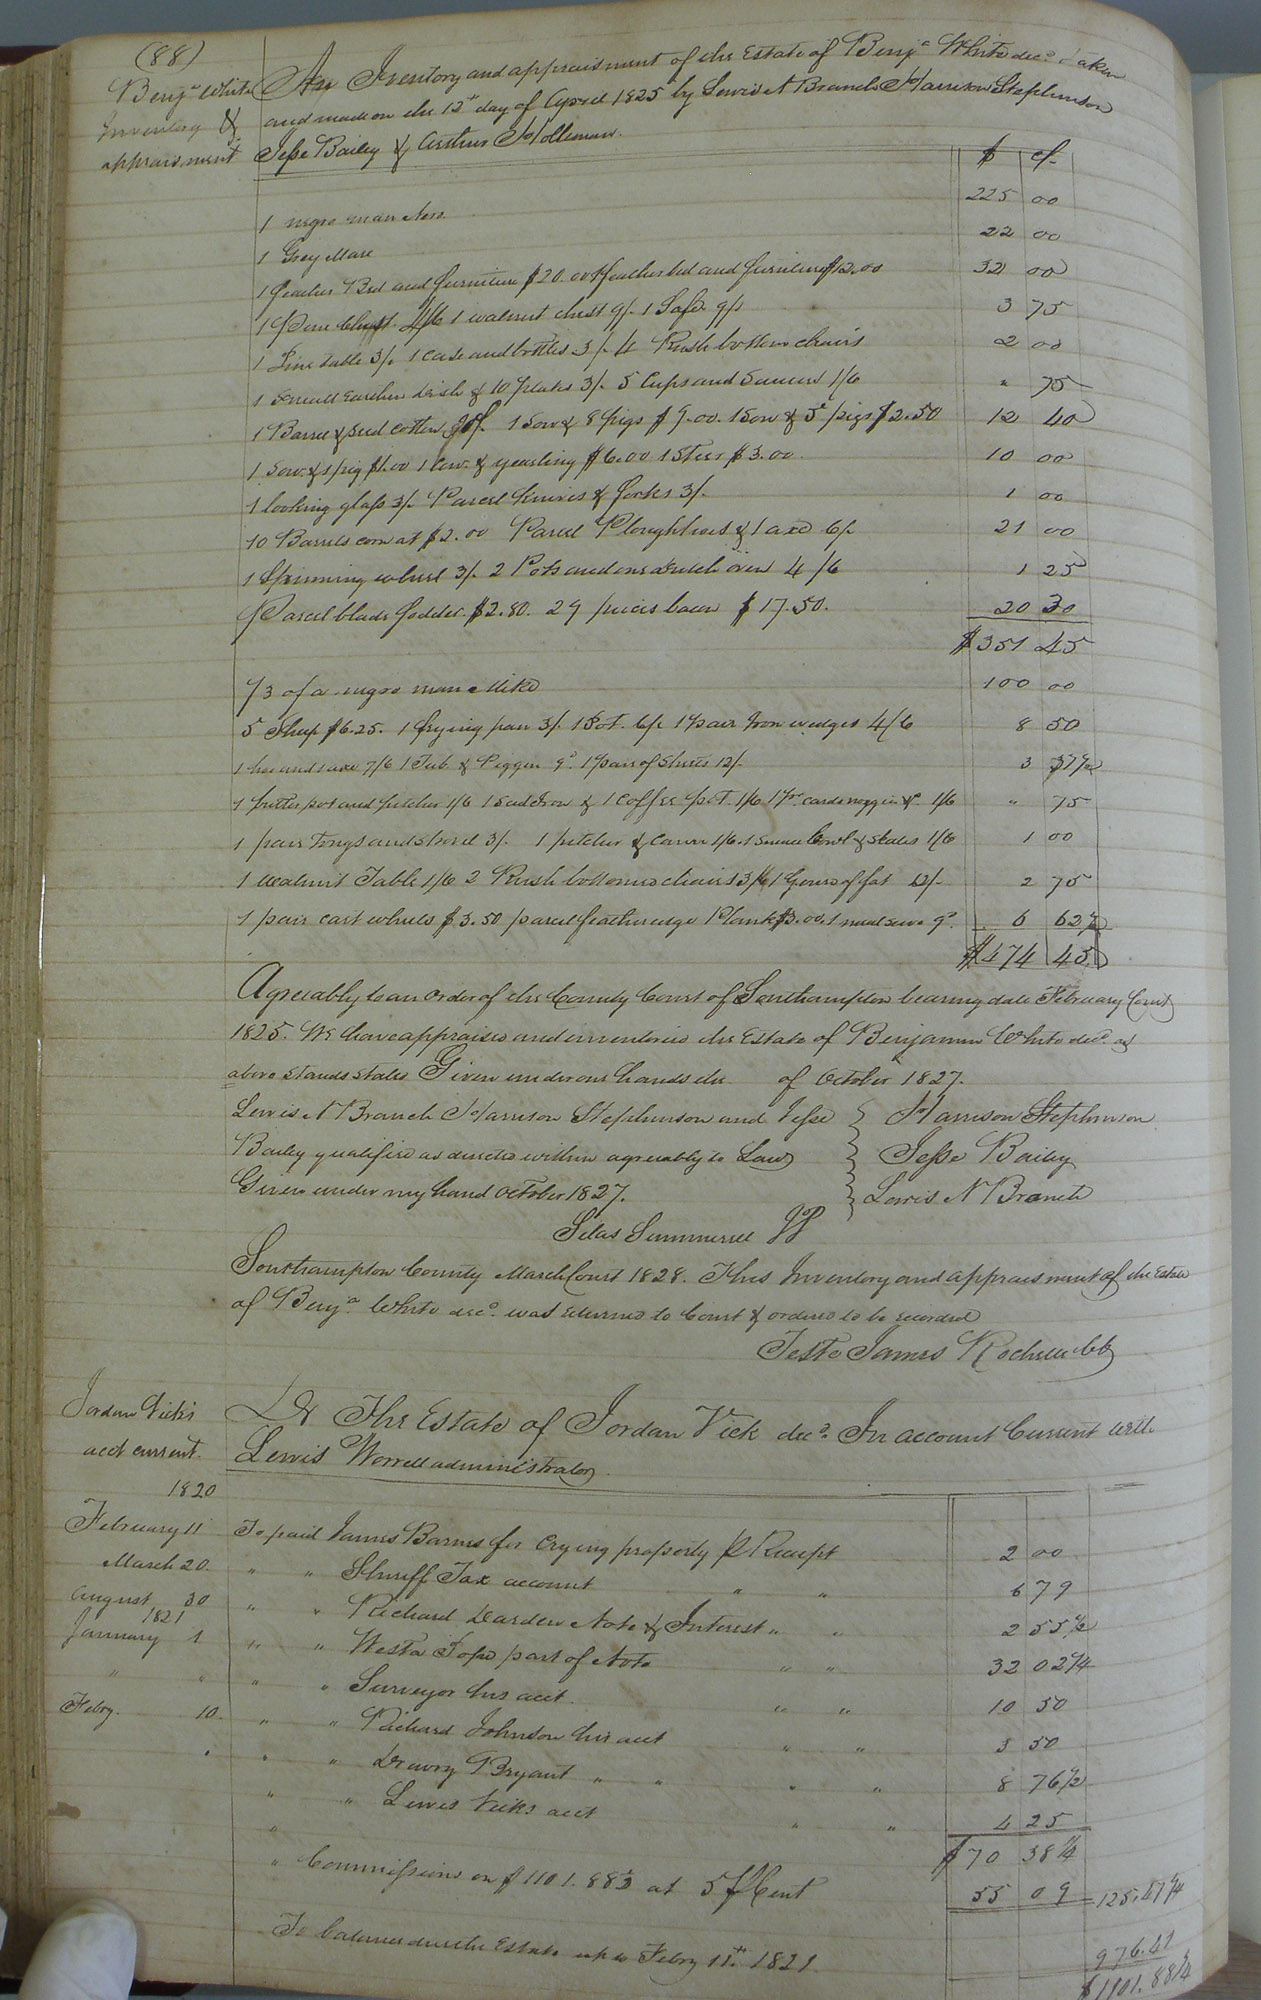 (88)
Benja White
Inventory &
appraisment
An Inventory and appraisment of the Estate of Benja White decd taken
and made on the 12th day of April 1825 by Lewis N Branch Harrison Stephenson
Jesse Bailey & Arthur Holleman.
$ cts
1 negro man Nero 225 00
1 Grey Mare 22 00
1 feather Bed and furniture $20.00 1 feather bed and furniture $12.00 32 00
1 Pine Chest 4/6 1 walnut chest 9/. 1 Safe 9/. 3 75
1 Pine Table 3/. 1 case and bottles 3/. 4 Rush bottom chairs 2 00
1 small Earthen dish & 10 plates 3/. 5 Cups and Saucers 1/6 " 75
1 Barrel & seed cotton 1 Sow & 8 pigs $9.00. 1 Sow & 5 pigs $2.50 12 40
1 Sow & 1 pig $1.00 1 Cow & yearling $6.00 1 Steer $3.00. 10 00
1 looking glass 3/. Parcel knives & forks 3/. 1 00
10 Barrels corn at $2.00 Parcel Ploughhoes & 1 axe 6/. 21 00
1 Spinning wheel 3/. 2 Pots and one dutch oven 4/6 1 25
Parcel blade fodder $2.80. 29 pieces bacon $17.50. 20 30
$351 45
1/3 of a negro man Mike 100 00
5 Sheep $6.25. 1 frying pan 3/. 1 Pot 6/. 1 pair Iron wedges 4/6 8 50
1 hoe and 1 axe 7/6 1 Tub & Piggin 9d. 1 Pair of Sheets 12/. 3 37½
1 butter pot and pitcher 1/6 1 Sad Iron & 1 Coffee pot 1/6 1 pr. cards noggin &c. 1/6 " 75
1 pair Tongs and shovel 3/. 1 pitcher & 1/6. 1 Small bowl & 1/6 1 00
1 walnut Table 1/6 2 Rush bottomed chairs 3/. 1 Gourd of fat 12/. 2 75
1 pair cart wheels $3.50 parcel featheredge Plank $3.00. 1 meal sieve 9d. 6 62½
$474 45
Agreeably to an Order of the County Court of Southampton bearing date February Court
1825. We have appraised and inventoried the Estate of Benjamin White decd. as
above stands stated Given under our hands the of October 1827.
Lewis N Branch Harrison Stephenson and Jesse
Bailey qualified as directed within agreeably to Law
Given under my hand October 1827.
Harrison Stephenson
Jesse Bailey
Lewis N Branch
Silas Summerell JP
Southampton County March Court 1828. This Inventory and appraisment of the Estate
of Benja. White decd. was returned to Court & ordered to be recorded
Teste James Rochelle Clk
Jordan Vick's
acct current.
Dr The Estate of Jordan Vick decd. In account Current with
Lewis Worrell administrator
1820
February 11 To paid James Barnes for Crying property P Receipt 2 00
March 20. " " Sheriff Tax account " " 6 79
August 30 " " Richard Darden Note & Interest " " 2 55½
1821
January 1 " " part of Note " " 32 02¼
" " " " Surveyor his acct. " " 10 50
Febry. 10. " " Richard Johnson his acct " " 3 50
" " " Drewry Bryant " " " " 8 76½
" " Lewis Vicks acct " " 4 25
$70 38¼
" Commissions on $1101.88¾ at 5 P Cent 55 09 125.47¼
To balance due the Estate up to Febry 11th. 1821 976.41
$1101.88¼